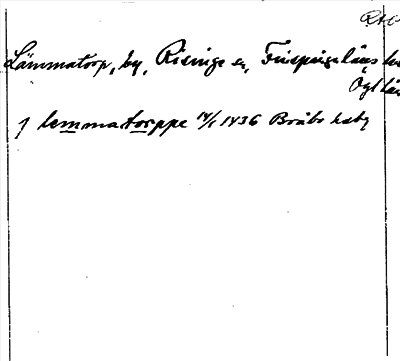 Lämmatorp, by, Risinge sn, Finspånga läns
Ögl län
J lemmatorppe 14/5 1436 Bråbo hskp